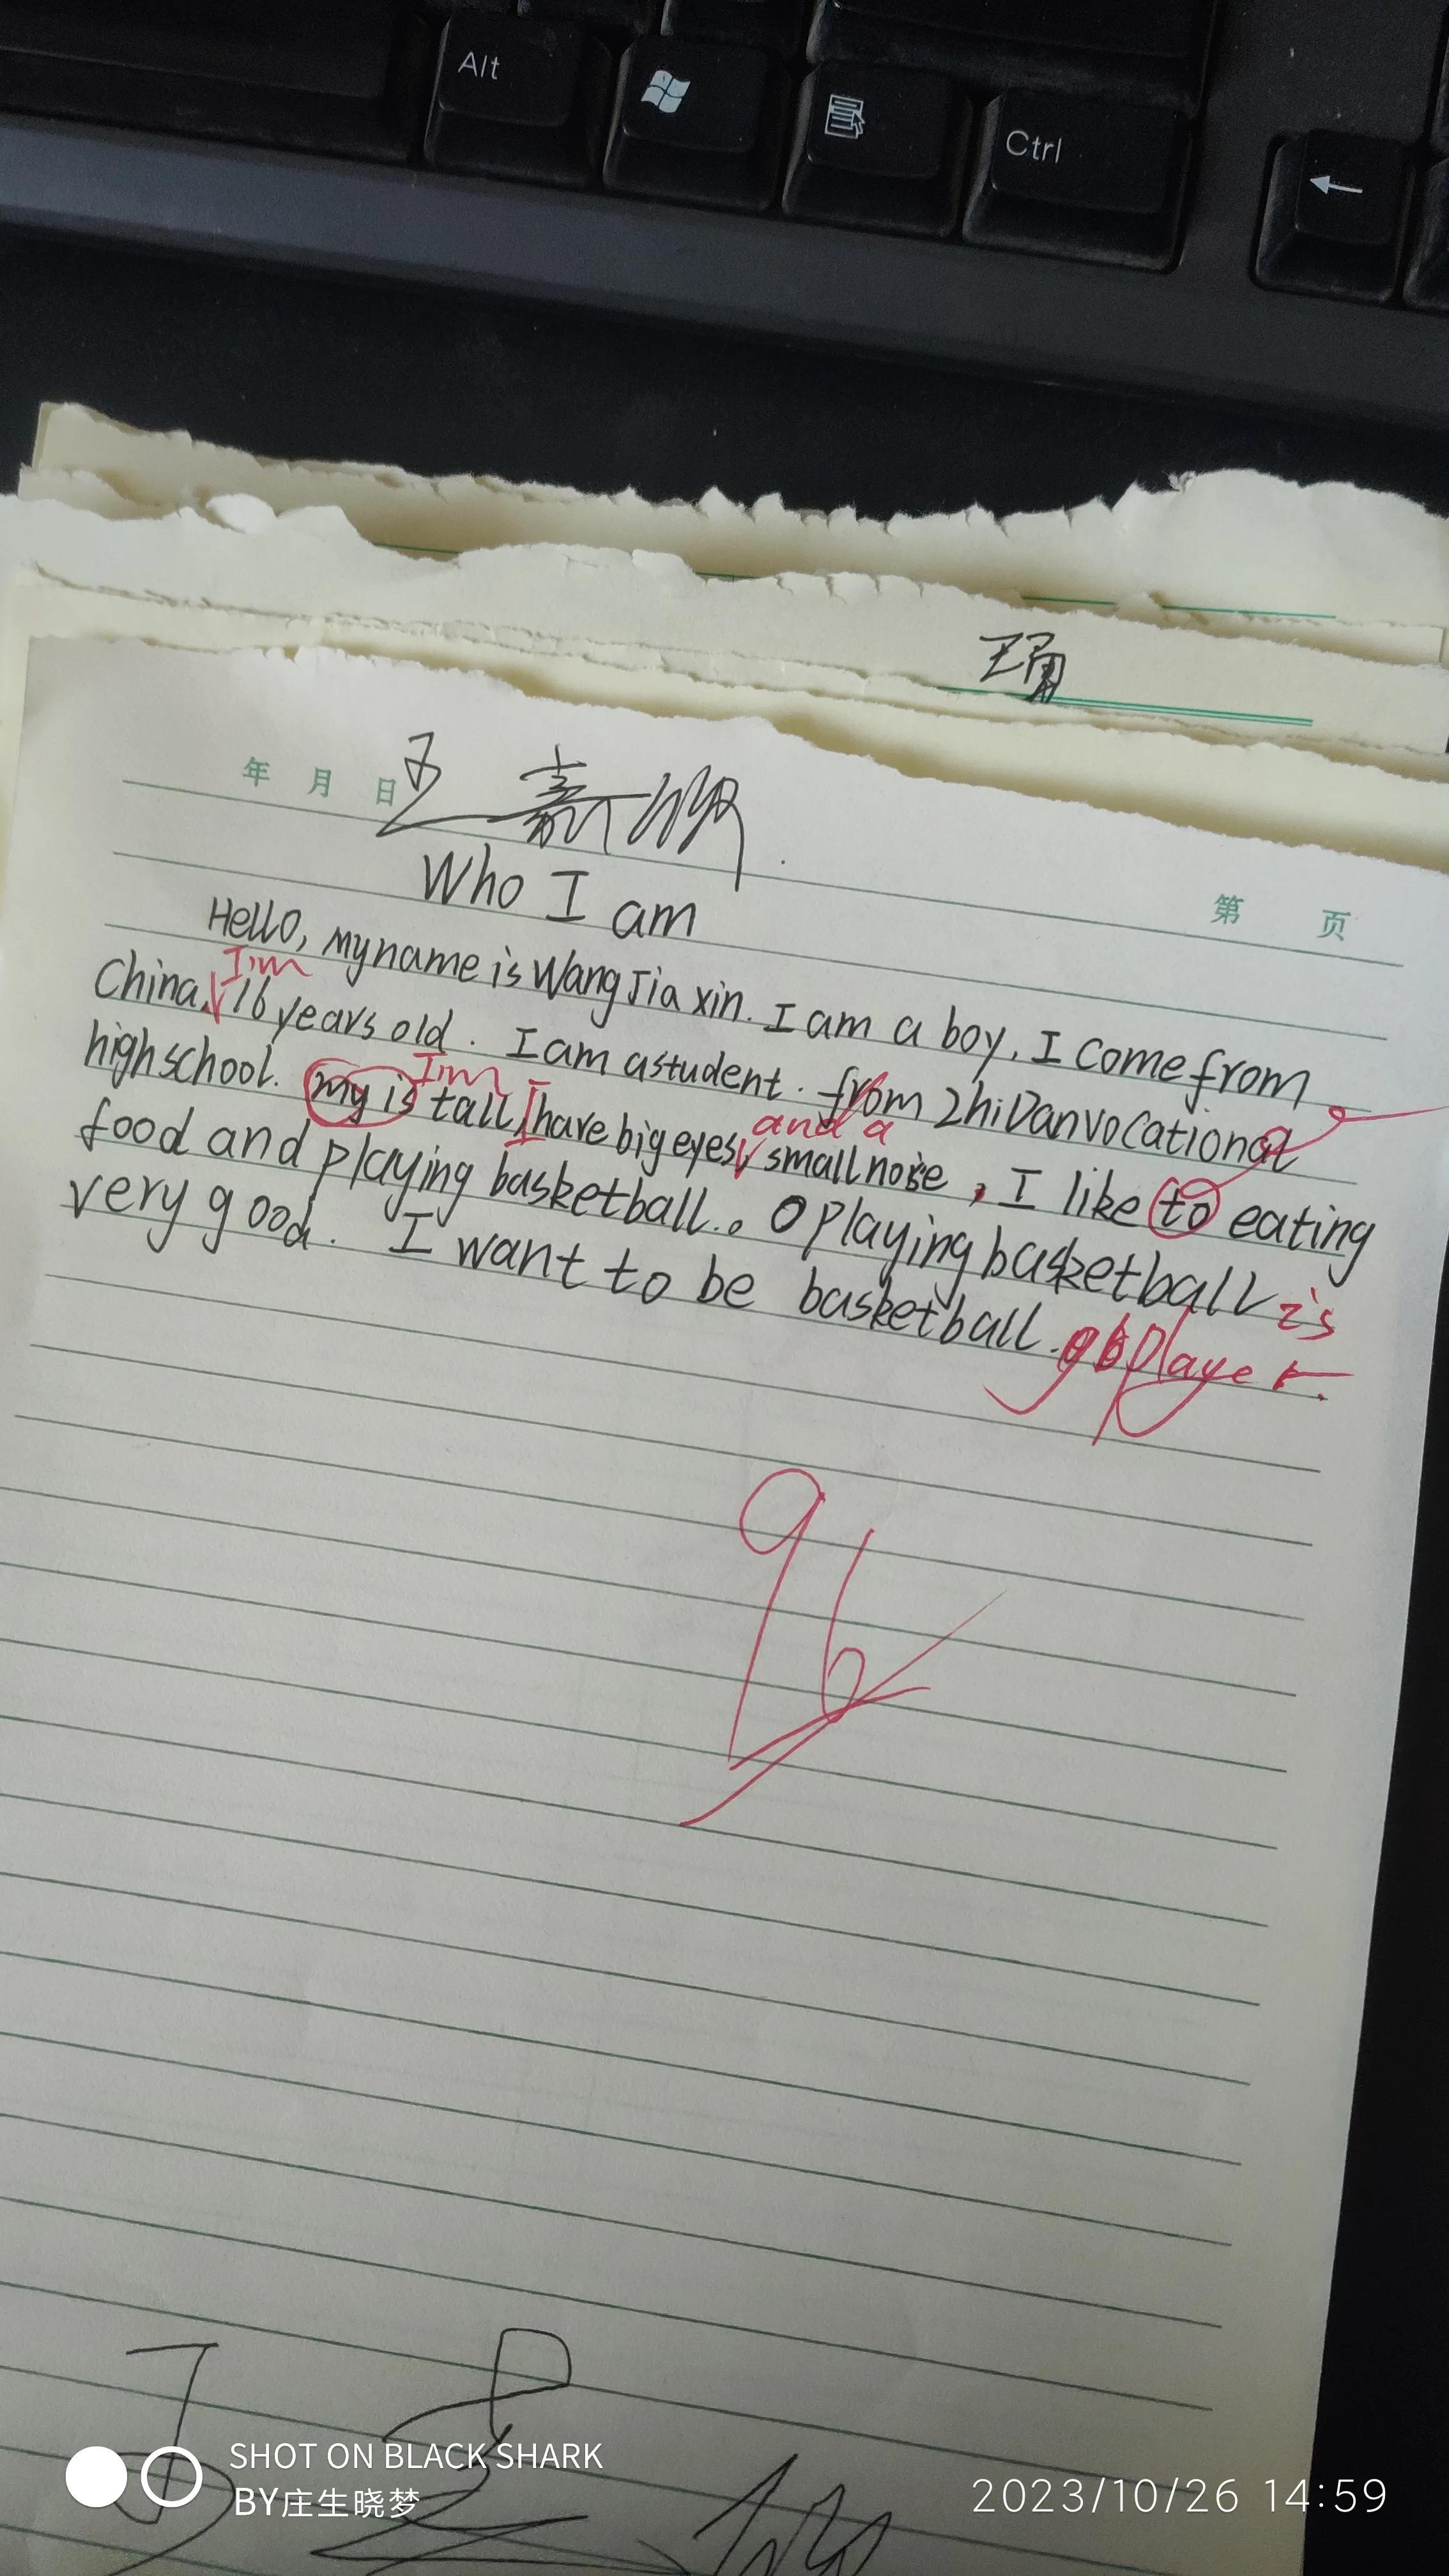 Alt
Ctrl
年 月 日
第 页
Who I am
Hello, my name is Wang Jia xin. I am a boy, I come from
I'm
China. 16 years old. I am a student. from ZhiDan vocational
I'm
high school. my is tall I have big eyes, small noise, I like to eating
and a
food and playing basketball. playing basketball is
very good. I want to be basketball. player.
96
SHOT ON BLACK SHARK
BY庄生晓梦
2023/10/26 14:59